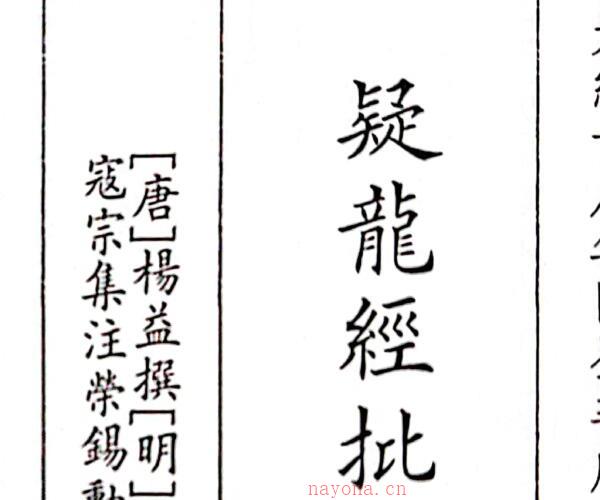 疑龍經批
[唐]楊益撰[明]
寇宗集注榮錫勳
nayona.cn